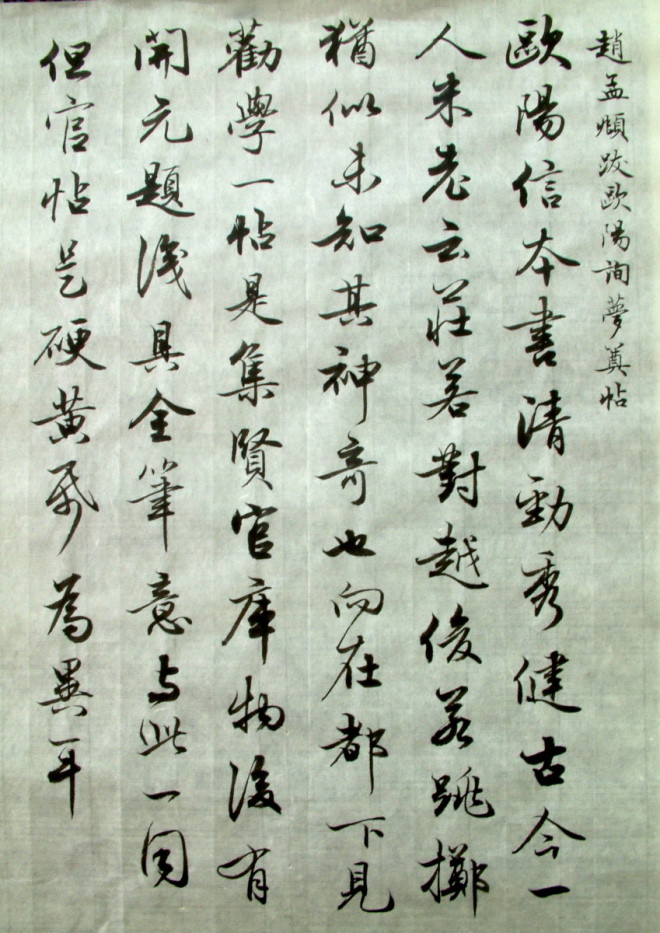 趙孟頫跋歐陽詢夢奠帖
歐陽信本書清勁秀健古今一
人米老云莊若對越俊若跳擲
猶似未知其神奇也向在都下見
勸學一帖是集賢官庫物後有
開元題識具全筆意与此一同
但官帖是硬黄帋為異耳